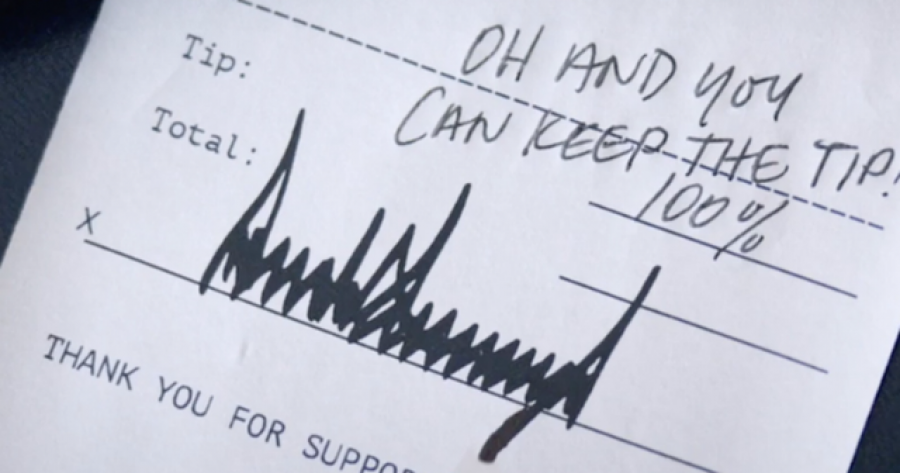 OH AND YOU
CAN KEEP THE TIP!
Tip: 100%
Total:
X
THANK YOU FOR